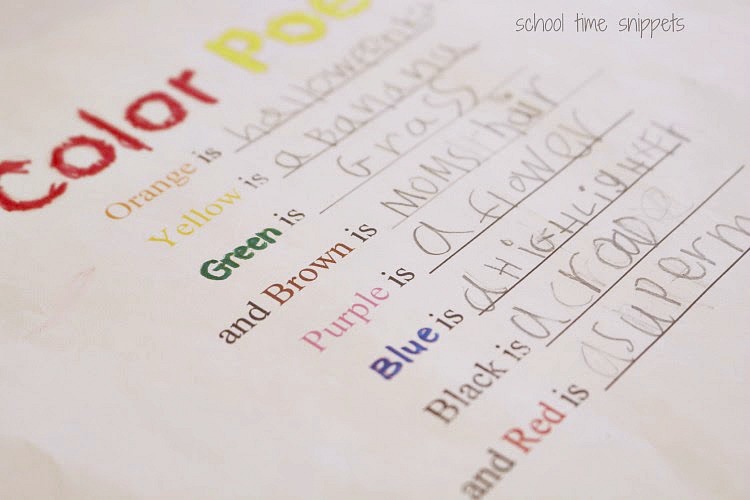 school time snippets
Color Poe
Orange is hallowein
Yellow is a Banana
Green is Grass
and Brown is MOMS hair
Purple is a flower
Blue is a HiGHLiGHtEr
Black is a croad
and Red is a superm